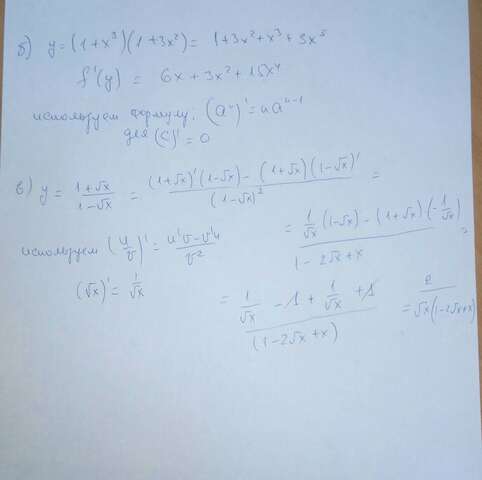 б) y = (1+x³)(1+3x²) = 1+3x²+x³+3x⁵
f'(y) = 6x + 3x² + 15x⁴
используем формулу: (aⁿ)' = na^(n-1)
для (C)' = 0
в) y = (1+√x)/(1-√x) = ((1+√x)'(1-√x) - (1+√x)(1-√x)')/(1-√x)² =
= (1/√x (1-√x) - (1+√x)(-1/√x))/(1-2√x+x) =
используем (u/v)' = (u'v - v'u)/v²
(√x)' = 1/√x
= (1/√x - 1 + 1/√x + 1)/(1-2√x+x) = 2/(√x(1-2√x+x))